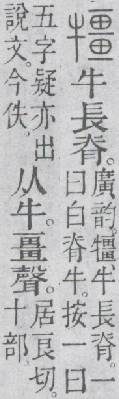 㹔牛長脊。廣韵。㹔、牛長脊。一曰白脊牛。按一曰
五字疑亦出說文。今佚。从牛。畺聲。居良切。十部。